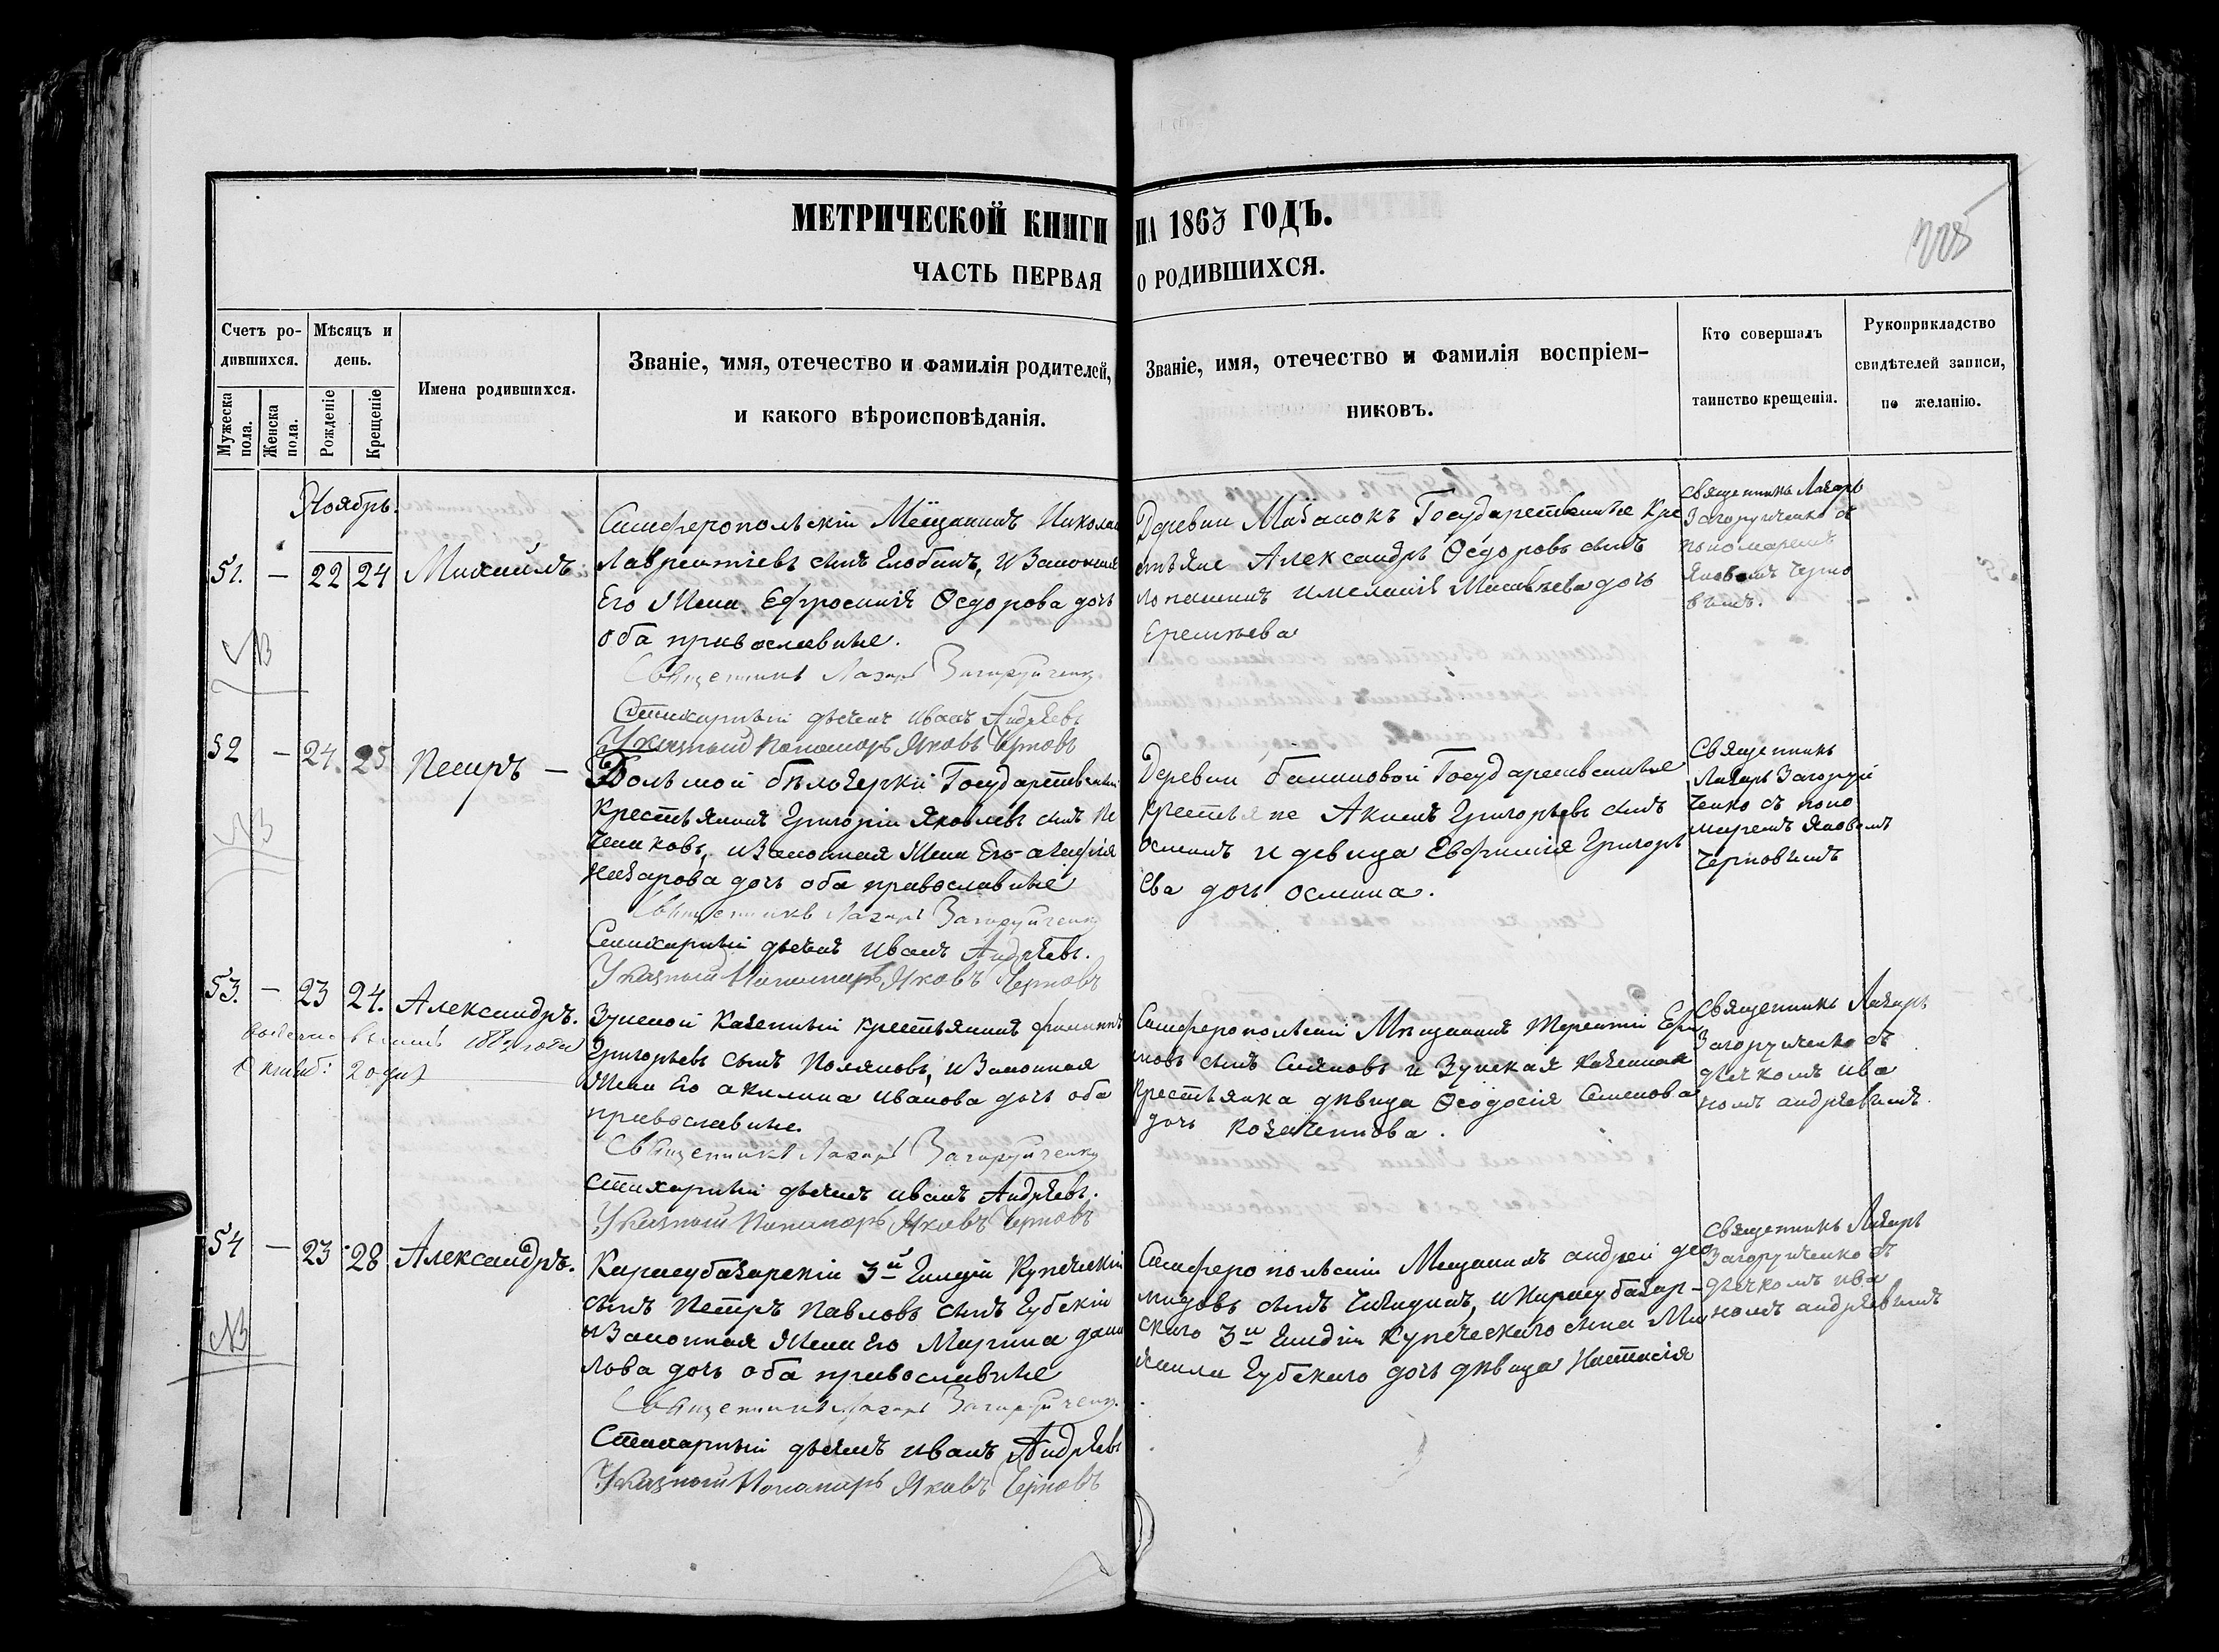 МЕТРИЧЕСКОЙ КНИГИ НА 1863 ГОДЪ.
ЧАСТЬ ПЕРВАЯ О РОДИВШИХСЯ.
Счетъ ро-
дившихся.
Мужеска пола.
Женска пола.
Мѣсяцъ и
день.
Рожденіе
Крещеніе
Имена родившихся.
Званіе, имя, отечество и фамилія родителей,
и какого вѣроисповѣданія.
Званіе, имя, отечество и фамилія воспріем-
никовъ.
Кто совершалъ
таинство крещенія.
Рукоприкладство
свидѣтелей записи,
по желанію.
Ноябрь.
51. — 22 24 Михаилъ
Симферопольскій Мѣщанинъ Николай
Лаврентіевъ сынъ и Законная
Его Жена Ефросинія Ѳедорова дочь
оба православные.
Священникъ Лазарь Загоруйченко
Стихарный дьячекъ Иванъ Андрѣевъ
Указный Пономарь Яковъ Черновъ
Деревни Мазанокъ Государственные Кре
стьяне Александръ Ѳедоровъ сынъ
дочь
Еремѣева
Священникъ Лазарь
Загоруйченко съ
пономаремъ
Яковомъ Черно
вымъ.
NB
52 — 24. 25 Петръ —
Большой бѣлозерки Государственный
Крестьянинъ Григорій Яковлевъ сынъ
и Законная Жена Его
Назарова дочь оба православные
Священникъ Лазарь Загоруйченко
Стихарный дьячекъ Иванъ Андрѣевъ.
Указный Пономарь Яковъ Черновъ
Деревни Государственные
Крестьяне Акимъ Григорьевъ сынъ
Осминъ и девица Евфимія Григорь
ева дочь осмина.
Священникъ
Лазарь Загоруй
ченко съ поно
маремъ Яковомъ
Черновымъ
NB
53. — 23 24. Александръ.
года
20 дня
Зуйской Казенный крестьянинъ
Григорьевъ сынъ Поляновъ, и Законная
Жена Его акилина иванова дочь оба
православные.
Священникъ Лазарь Загоруйченко
Стихарный дьячекъ иванъ Андрѣевъ.
Указный Пономарь Яковъ Черновъ
Симферопольскій Мѣщанинъ Терентій
мовъ сынъ и Зуйская Казенная
Крестьянка дѣвица Ѳеодосія Семенова
дочь
Священникъ Лазарь
Загоруйченко съ
дьячкомъ ива
номъ андрѣевымъ.
54 — 23 28 Александръ.
Карасубазарскій 3й Гилдіи Купеческій
сынъ Петръ Павловъ сынъ Губскій
и Законная Жена Его Марина дани
лова дочь оба православные
Священникъ Лазарь Загоруйченко
Стихарный дьячекъ иванъ Андрѣевъ
Указный Пономарь Яковъ Черновъ
Симферопольскій Мещанинъ андрей
мидовъ сынъ и Карасубазар-
скаго 3й Гилдіи Купеческаго сына Ми
хаила Губскаго дочь дѣвица Настасія
Священникъ Лазарь
Загоруйченко съ
дьячкомъ ива
номъ андрѣевымъ
NB